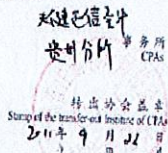 天健正信会计
贵州分所 事务所
CPAs
转出协会盖章
Stamp of the transfer-out Institute of CPAs
2011年 9月 22日